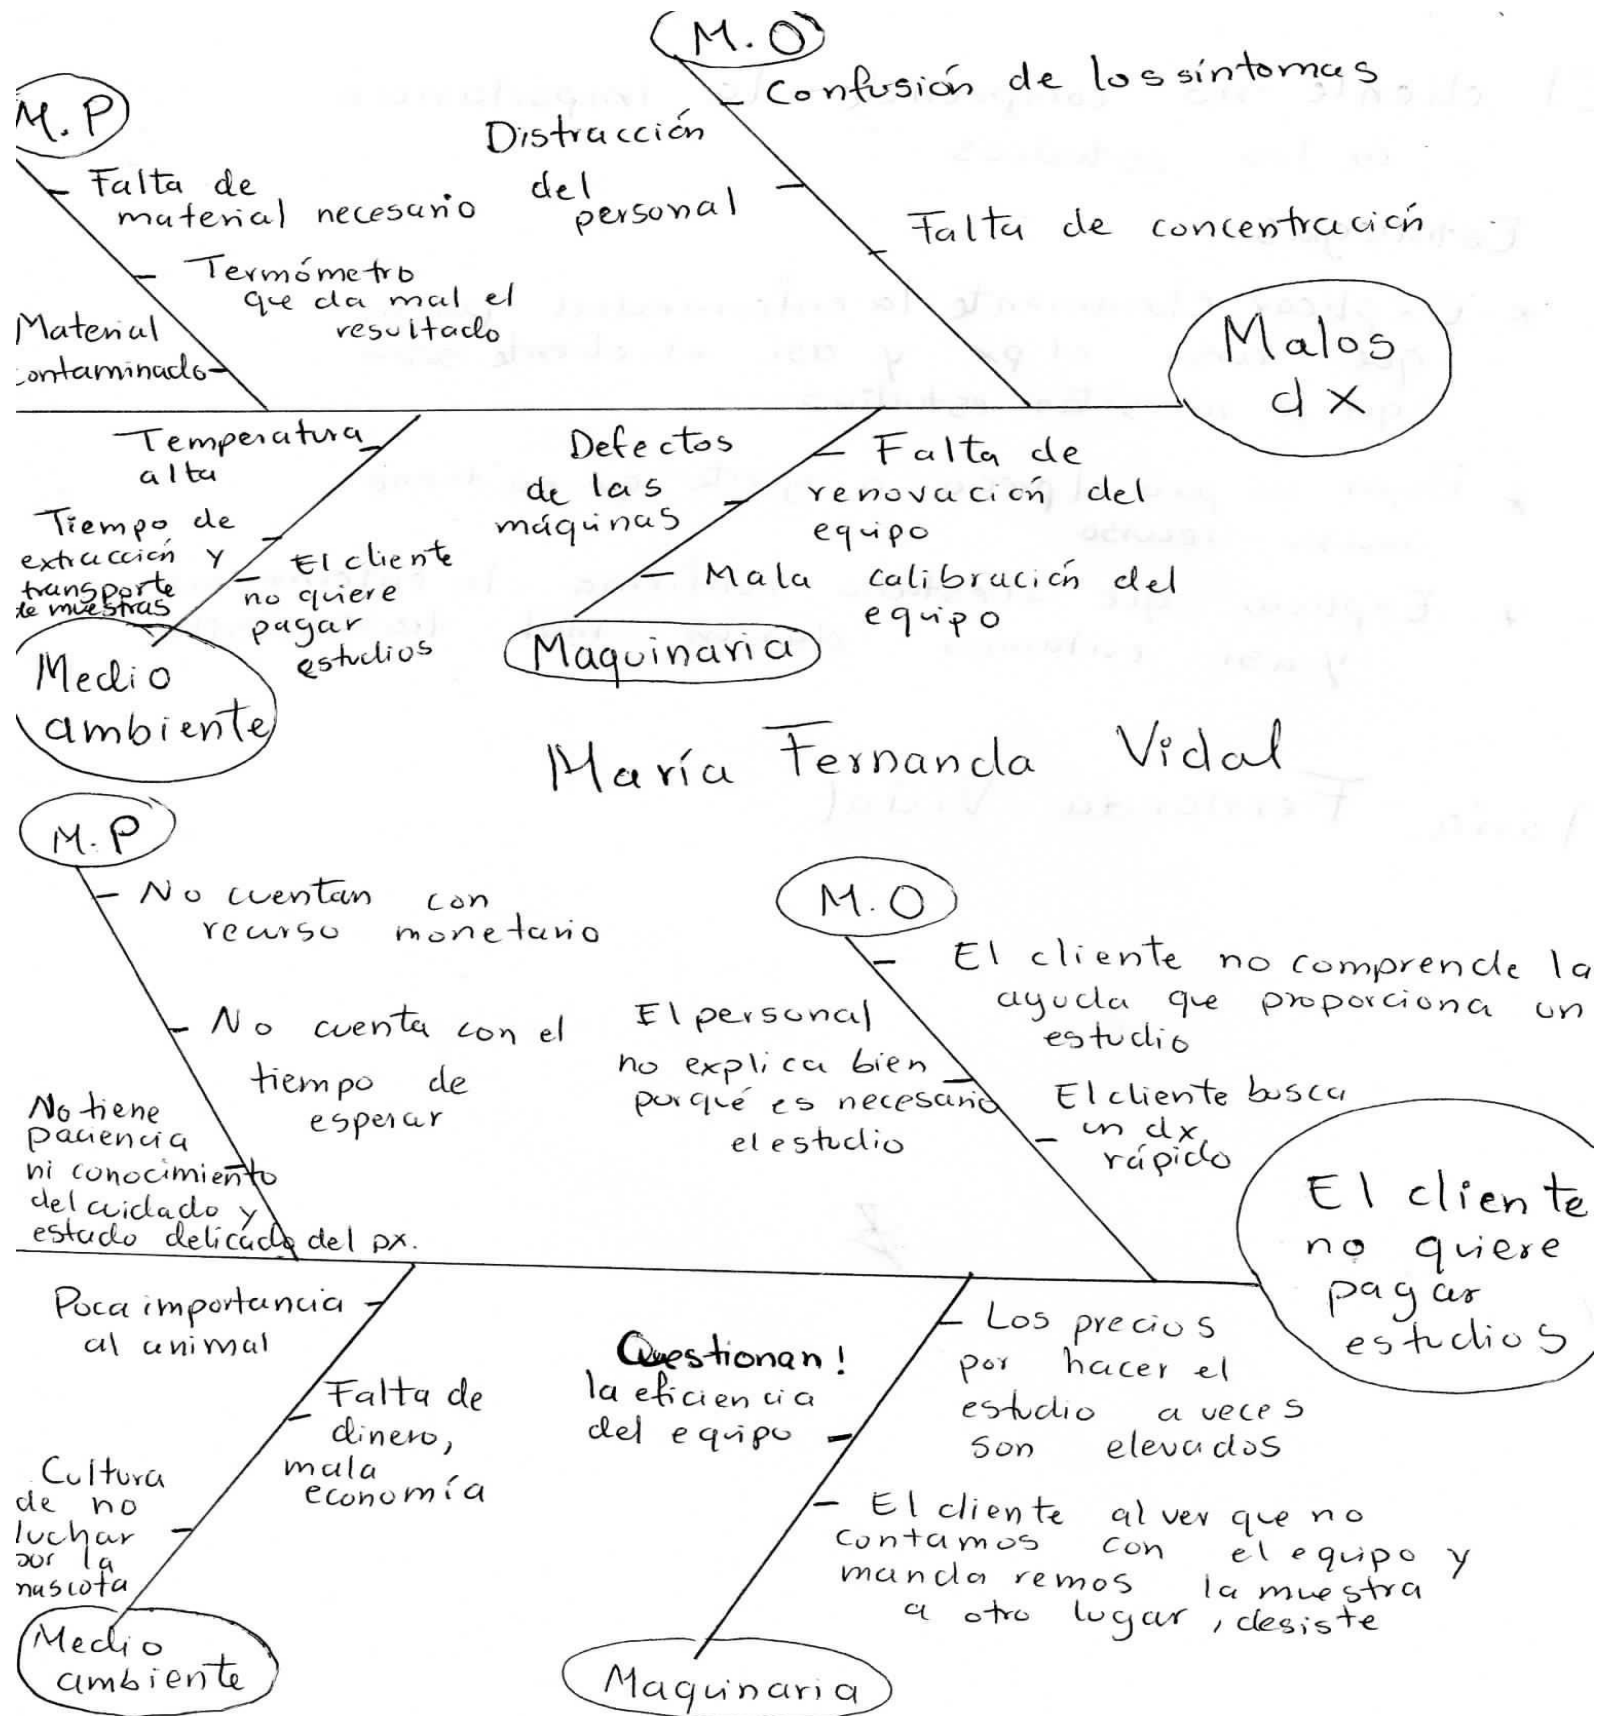 M.O
Confusión de los síntomas
Distracción
del
personal
Falta de concentración
M.P
Falta de
material necesario
Termómetro
que da mal el
resultado
Material
contaminado
Malos
dx
Temperatura
alta
Tiempo de
extracción y
transporte
de muestras
El cliente
no quiere
pagar
estudios
Medio
ambiente
Defectos
de las
máquinas
Falta de
renovación del
equipo
Mala calibración del
equipo
Maquinaria
María Fernanda Vidal
M.P
No cuentan con
recurso monetario
No cuenta con el
tiempo de
esperar
No tiene
paciencia
ni conocimiento
del cuidado y
estado delicado del px.
M.O
El cliente no comprende la
ayuda que proporciona un
estudio
El personal
no explica bien
porqué es necesario
el estudio
El cliente busca
un dx
rápido
El cliente
no quiere
pagar
estudios
Poca importancia
al animal
Falta de
dinero,
mala
economía
Cultura
de no
luchar
por la
mascota
Medio
ambiente
Cuestionan!
la eficiencia
del equipo
Los precios
por hacer el
estudio a veces
son elevados
El cliente al ver que no
contamos con el equipo y
mandaremos la muestra
a otro lugar, desiste
Maquinaria